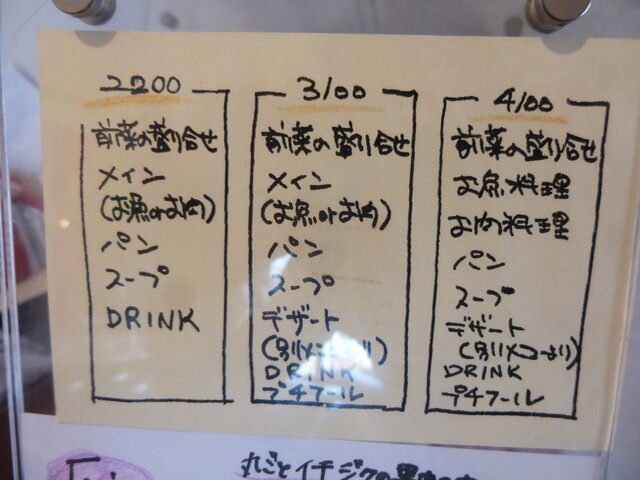 2200
前菜の盛り合せ
メイン
(お魚orお肉)
パン
スープ
DRINK
3100
前菜の盛り合せ
メイン
(お魚orお肉)
パン
スープ
デザート
(別メニューより)
DRINK
プチフール
4100
前菜の盛り合せ
お魚料理
お肉料理
パン
スープ
デザート
(別メニューより)
DRINK
プチフール
丸ごとイチジクの